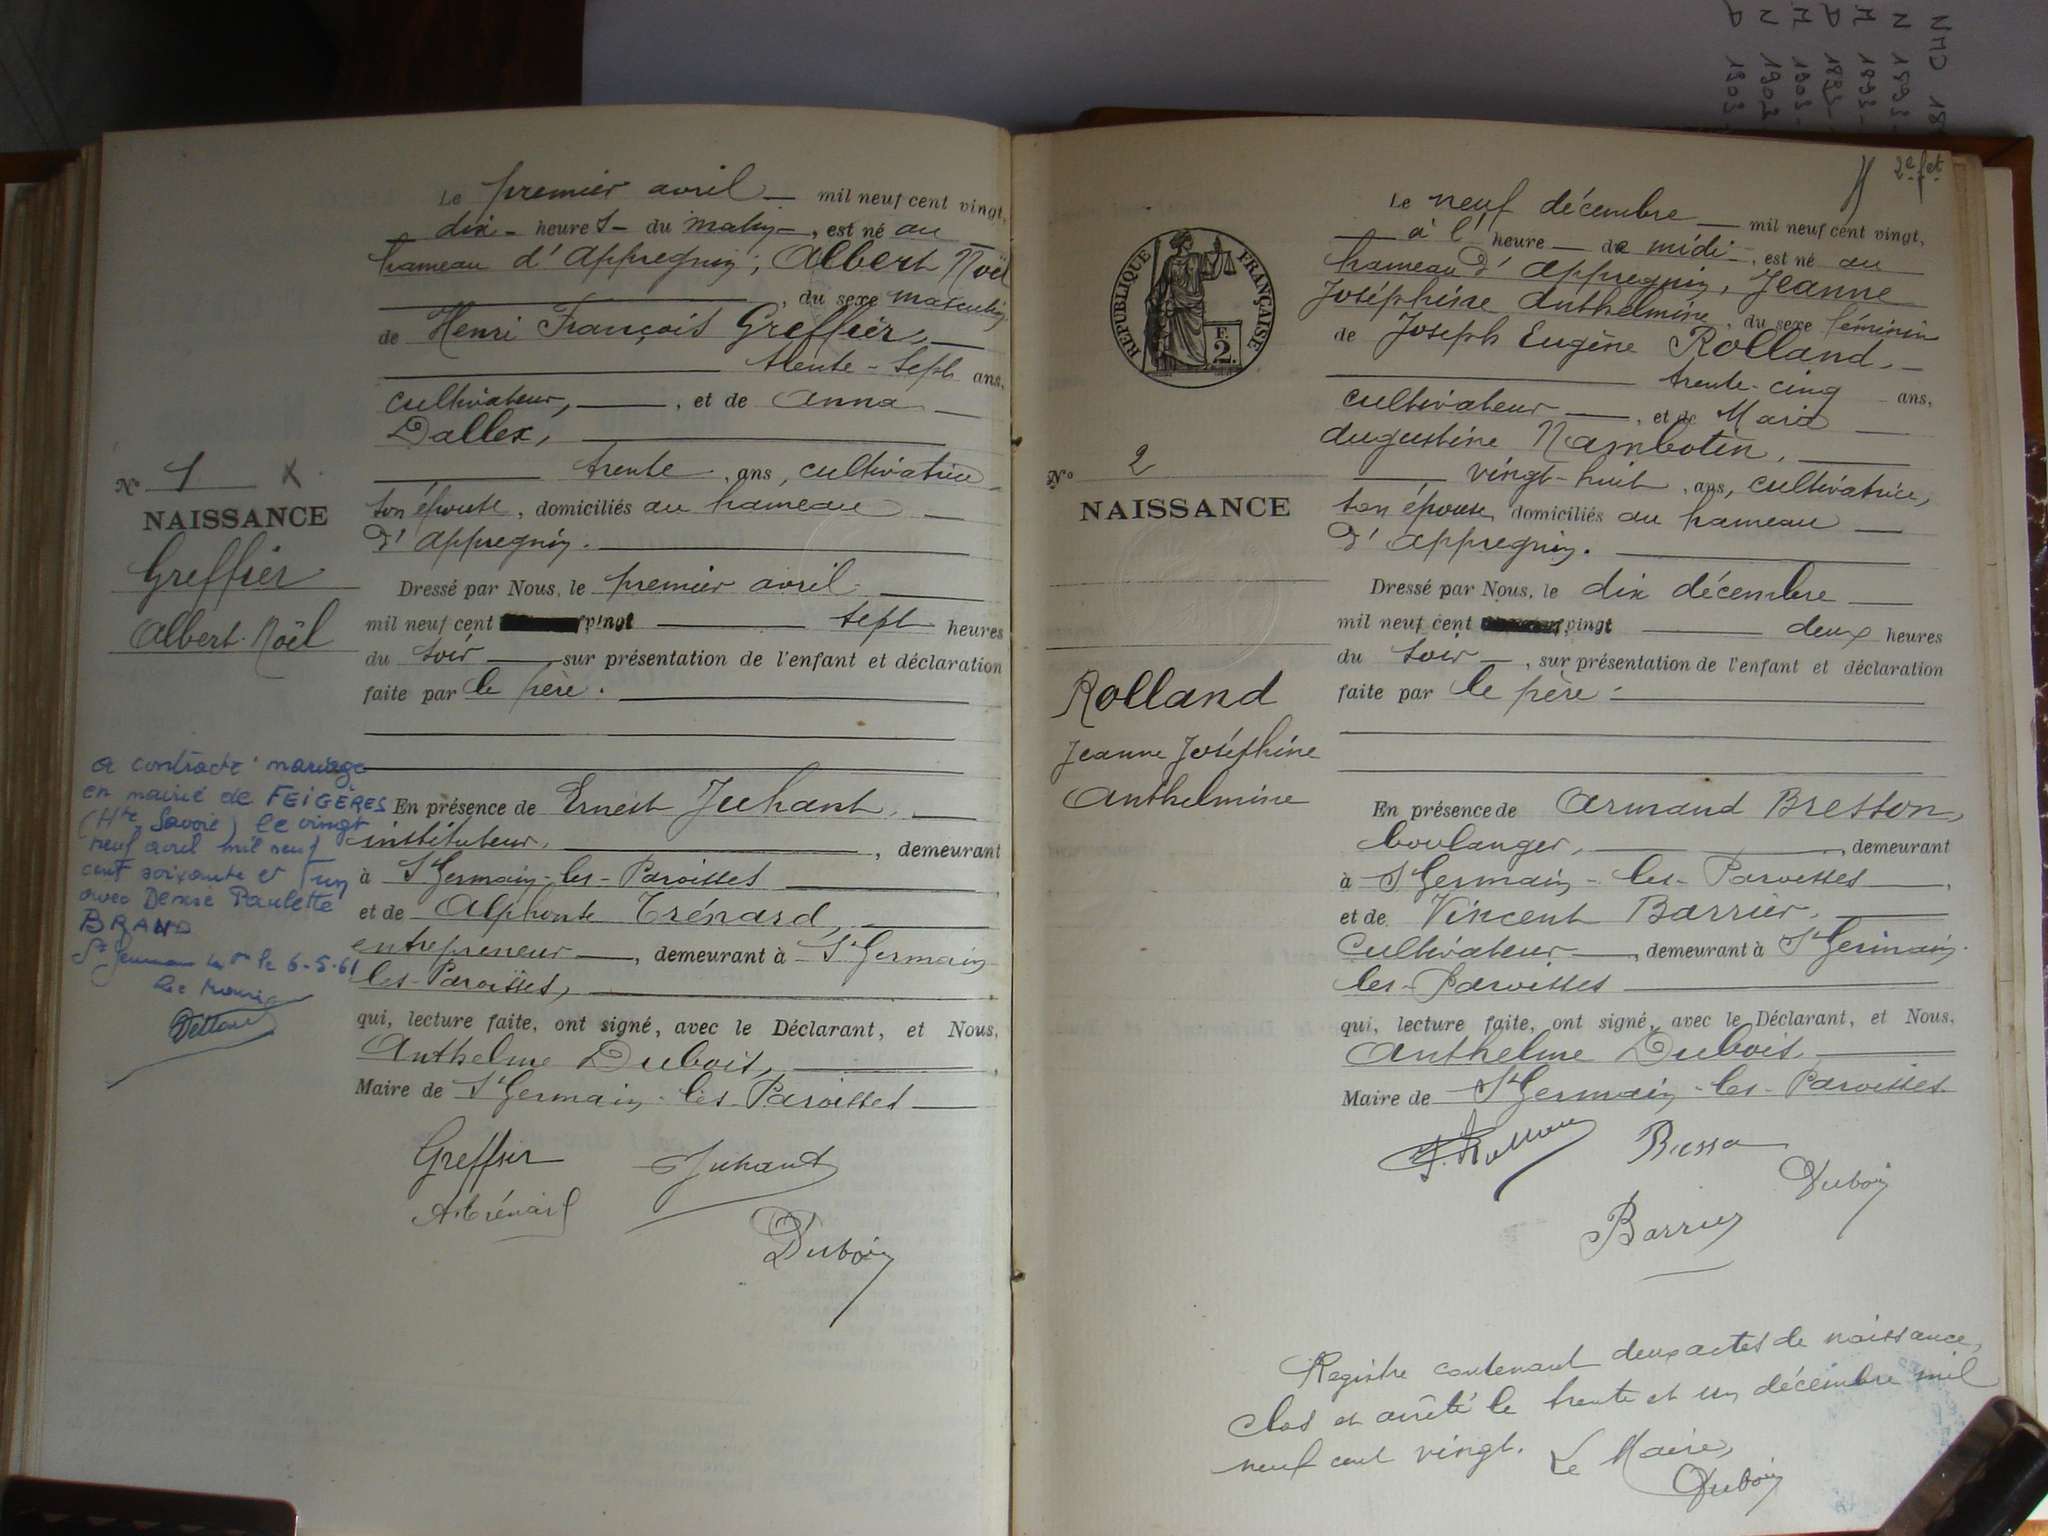 Le premier avril mil neuf cent vingt,
dix heures du matin, est né au
hameau d'Appregnin, Albert Noël
, du sexe masculin
de Henri François Greffier,
trente-sept ans,
cultivateur, , et de Anna
Dallex,
trente , ans, cultivatrice
son épouse, domiciliés au hameau
d'Appregnin.
N° 1 X
NAISSANCE
Greffier
Albert Noël
Dressé par Nous, le premier avril
mil neuf cent vingt sept heures
du soir sur présentation de l'enfant et déclaration
faite par le père.
a contracté mariage
en mairie de FEIGÈRES
(Hte Savoie) le vingt
neuf avril mil neuf
cent soixante et un
avec Denise Paulette
BRAND
St Germain les P le 6-5-61
Le Maire
En présence de Ernest Juhant,
instituteur, , demeurant
à St Germain-les-Paroisses
et de Alphonse Trénard,
entrepreneur , demeurant à St Germain
les-Paroisses,
qui, lecture faite, ont signé, avec le Déclarant, et Nous,
Anthelme Dubois,
Maire de St Germain-les-Paroisses
Greffier Juhant
A. Trénard
Dubois
NMD 18
N 1893-
M 1893-
D 1893-
M 1903-
N 1902
D 1903
2e fet
RÉPUBLIQUE FRANÇAISE
F.
2.
Le neuf décembre mil neuf cent vingt,
à l'heure de midi, est né au
hameau d'Appregnin, Jeanne
Joséphine Anthelmine, du sexe féminin
de Joseph Eugène Rolland,
trente-cinq ans,
cultivateur , et de Maria
Augustine Nambotin,
vingt-huit , ans, cultivatrice,
son épouse, domiciliés au hameau
d'Appregnin.
N° 2
NAISSANCE
Rolland
Jeanne Joséphine
Anthelmine
Dressé par Nous, le dix décembre
mil neuf cent vingt deux heures
du soir , sur présentation de l'enfant et déclaration
faite par le père.
En présence de Armand Bresson,
boulanger, , demeurant
à St Germain-les-Paroisses ,
et de Vincent Barrier,
cultivateur , demeurant à St Germain-
les-Paroisses
qui, lecture faite, ont signé, avec le Déclarant, et Nous,
Anthelme Dubois
Maire de St Germain-les-Paroisses
Dubois
Barrier
Registre contenant deux actes de naissance,
clos et arrêté le trente et un décembre mil
neuf cent vingt. Le Maire,
Dubois